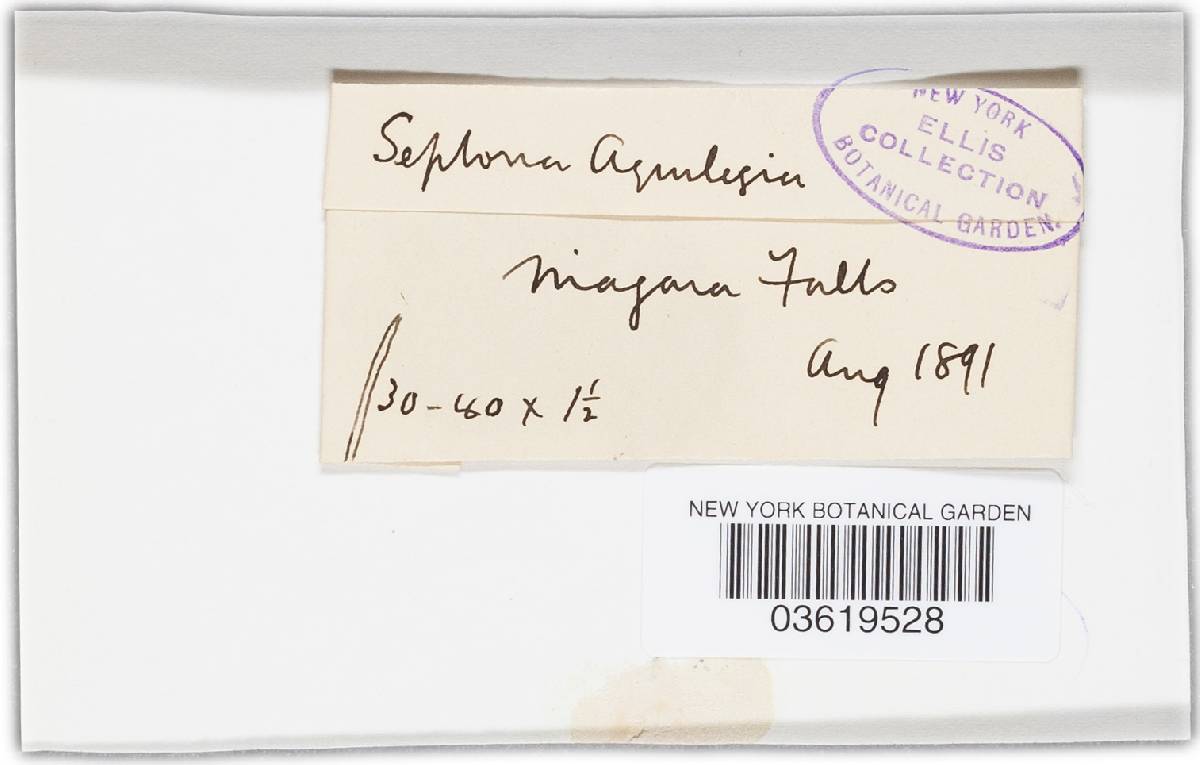 Septoria Aquilegia
NEW YORK
ELLIS
COLLECTION
BOTANICAL GARDEN.
Niagara Falls
Aug 1891
30-40 x 1½
NEW YORK BOTANICAL GARDEN
03619528